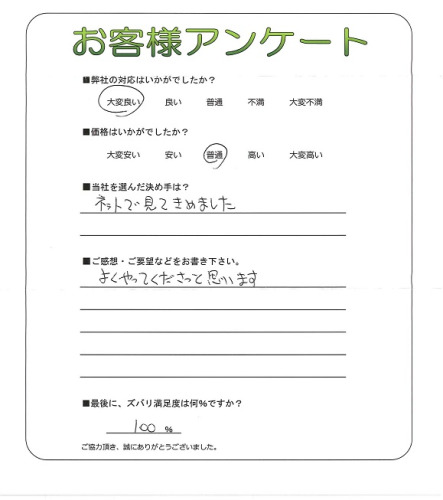 お客様アンケート
■弊社の対応はいかがでしたか？
大変良い 良い 普通 不満 大変不満
■価格はいかがでしたか？
大変安い 安い 普通 高い 大変高い
■当社を選んだ決め手は？
ネットで見てきめました
■ご感想・ご要望などをお書き下さい。
よくやってくださっと思います
■最後に、ズバリ満足度は何%ですか？
100 %
ご協力頂き、誠にありがとうございました。